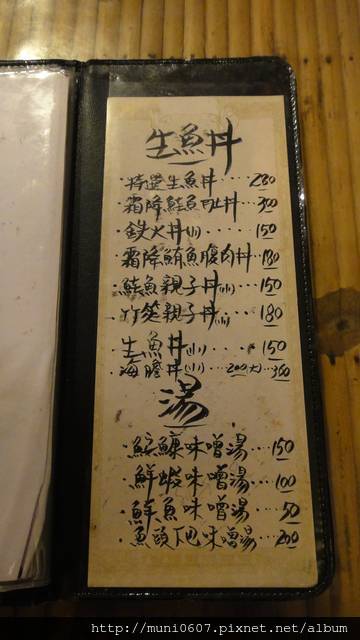 生魚丼
·特選生魚丼····280
·霜降鮭魚肚丼··300
·鉄火丼(小)····150
·霜降鮪魚腹肉丼··180
·鮭魚親子丼(小)··150
·竹筴親子丼(小)··180
·生魚丼(小)···150
·海膽丼(小)··200(大)··350
湯
·味噌湯···150
·鮮蝦味噌湯···100
·鮮魚味噌湯···50
·魚頭味噌湯··200
http://muni0607.pixnet.net/album